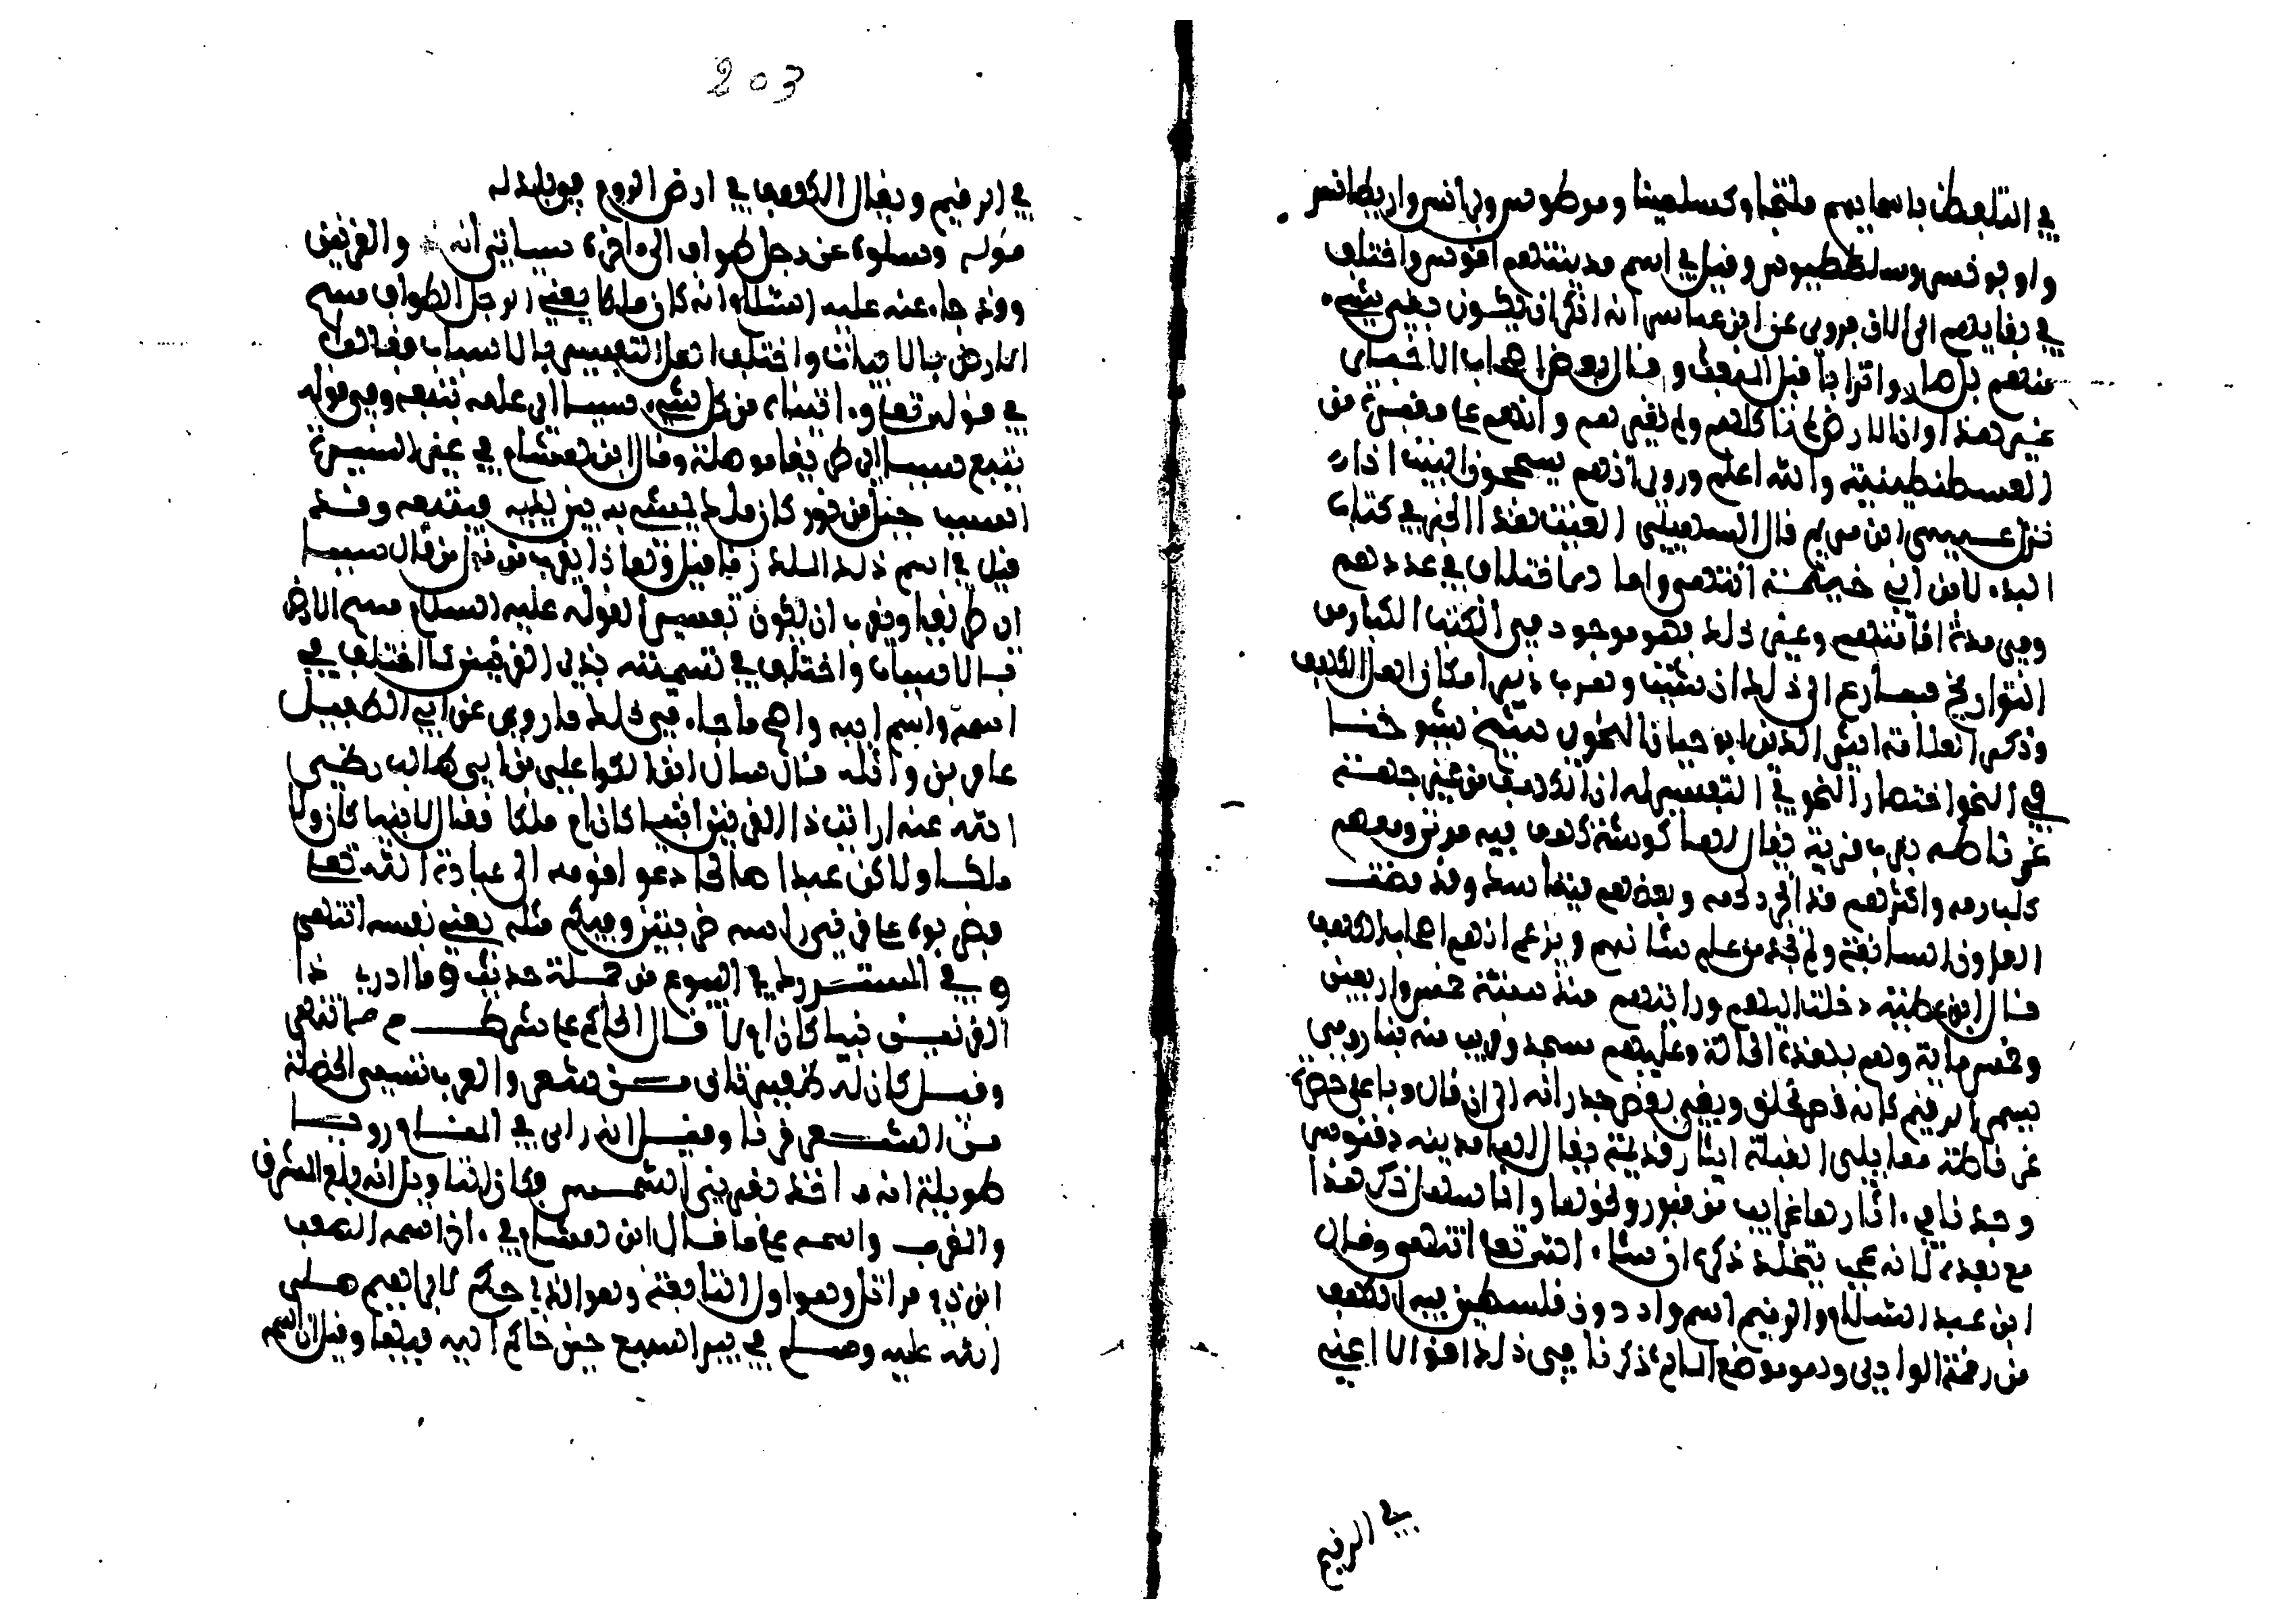 في التلفظ باسمايهم مليخا وكسلمينا ومرطوس وبرانس واريطانس
واونوفس وسلططيوس وقيل في اسم مدينتهم افوس واختلف
في بقايهم الى الان فروي عن ابن عباس انه انكر ان يكون بقي شيء
منهم بل صاروا ترابا قبل المبعث وقال بعض اصحاب الاخبار
غير هذا وان الارض لم تاكلهم ولم تغيرهم وانهم على مقربة من
القسطنطينية والله اعلم وروي انهم يسحجون البيت اذا
نزل عيسى ابن مريم قال السهيلي الفيت هذا الخبر في كتاب
البدء لابن ابي خيثمة انتهى واما اختلاف في عددهم
وفي مدة اقامتهم وغير ذلك فهو موجود في الكتب الكبار من
التواريخ فسارع الى ذلك ان شيت وتعرف ذلك مكان اهل الكهف
وذكر العلامة اثير الدين ابو حيان النحوي شيخ شيوخنا
في النحو اختصار النحو في التفسير له ان الكهف من غير جهة
غرناطة بقرب قرية يقال لها لوشة كهف فيه موتى ومعهم
كلب رمه واكثرهم قد انجرد لحمه وبعضهم متماسك وقد مضت
القرون السالفة ولم نجد من علم شانهم ويزعم انهم اصحاب الكهف
قال ابن عطية دخلت اليهم ورايتهم منذ سنة خمس واربعين
وخمس ماية وهم بهذه الحالة وعليهم مسجد وقريب منه بنا رومي
يسمى الرقيم كانه قصر مخلق وبقي بعض جدرانه الى ان قال وباعلى حضرة
غرناطة مما يلي القبلة اثار قديمة يقال لها مدينة دقيوس
وجدنا في اثارها غرايب من قبور ونحوها وانما سهل ذكر هذا
مع بعده لانه عجب يتخلد ذكره ان شاء الله تعالى انتهى وقال
ابن عبد السلام والرقيم اسم واد دون فلسطين فيه الكهف
من رقمة الوادي وهو موضع الماء ذكرنا في ذلك اقوالا اعني
في الرقيم
203
في الرقيم ويقال الكهف في ارض الروم
قوله وسلوه عن رجل طواف الى اخره سياتي انه ذو القرنين
وقد جاء عنه عليه السلام انه كان ملكا يعني الرجل الطواف مسح
الارض بالاسباب واختلف اهل التفسير بالاسباب فقالوا
في قوله تعالى واتيناه من كل شيء سببا اي علما يتبعه وفي قوله
فاتبع سببا اي طريقا موصلة وقال ابن هشام في غير السيرة
السبب حبل من نور كان ملك يمشي به بين يديه فيتبعه وقد
قيل في اسم ذلك الملك زياقيل وهذا يقرب من قول من قال سببا
اي طريقا ويقرب ان يكون تفسيرا لقوله عليه السلام مسح الارض
بالاسباب واختلف في تسميته بذي القرنين كما اختلف في
اسمه واسم ابيه واصح ما جاء في ذلك ما روي عن ابي الطفيل
عامر بن واثلة قال سال ابن الكوا علي بن ابي طالب رضي
الله عنه ارايت ذا القرنين انبيا كان ام ملكا فقال لا نبيا كان ولا
ملكا ولاكن عبدا صالحا دعوا قومه الى عبادة الله تعالى
فضربوه على قرني راسه ضربتين وفيكم مثله يعني نفسه انتهى
وفي المستدرك في البيوع من جملة حديث وما ادري ذا
القرنين نبيا كان ام لا قال الحاكم على شرطهما انتهى
وقيل كان له ظفيرتان من شعر والعرب تسمي الخصلة
من الشعر قرنا وقيل انه راى في المنام رويا
طويلة انه اخذ بقرني الشمس وكان تاويل انه بلغ المشرق
والمغرب واسمه على ما قال ابن هشام في اخر اسمه الصعب
ابن ذي مراثل وهو اول التبابعة وهو الذي حكم لابراهيم صلى
الله عليه وسلم في بير السبع حين خاكم اليه فيها وقيل ان اسمه